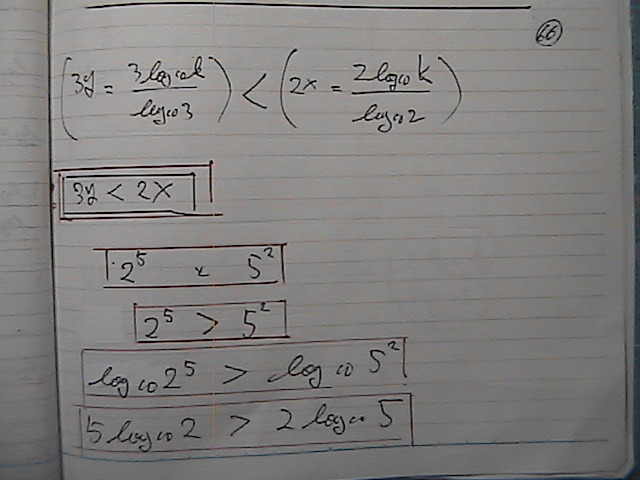 66
(3y = 3 log10 k / log10 3) < (2x = 2 log10 k / log10 2)
3y < 2x
2^5 × 5^2
2^5 > 5^2
log10 2^5 > log10 5^2
5 log10 2 > 2 log10 5